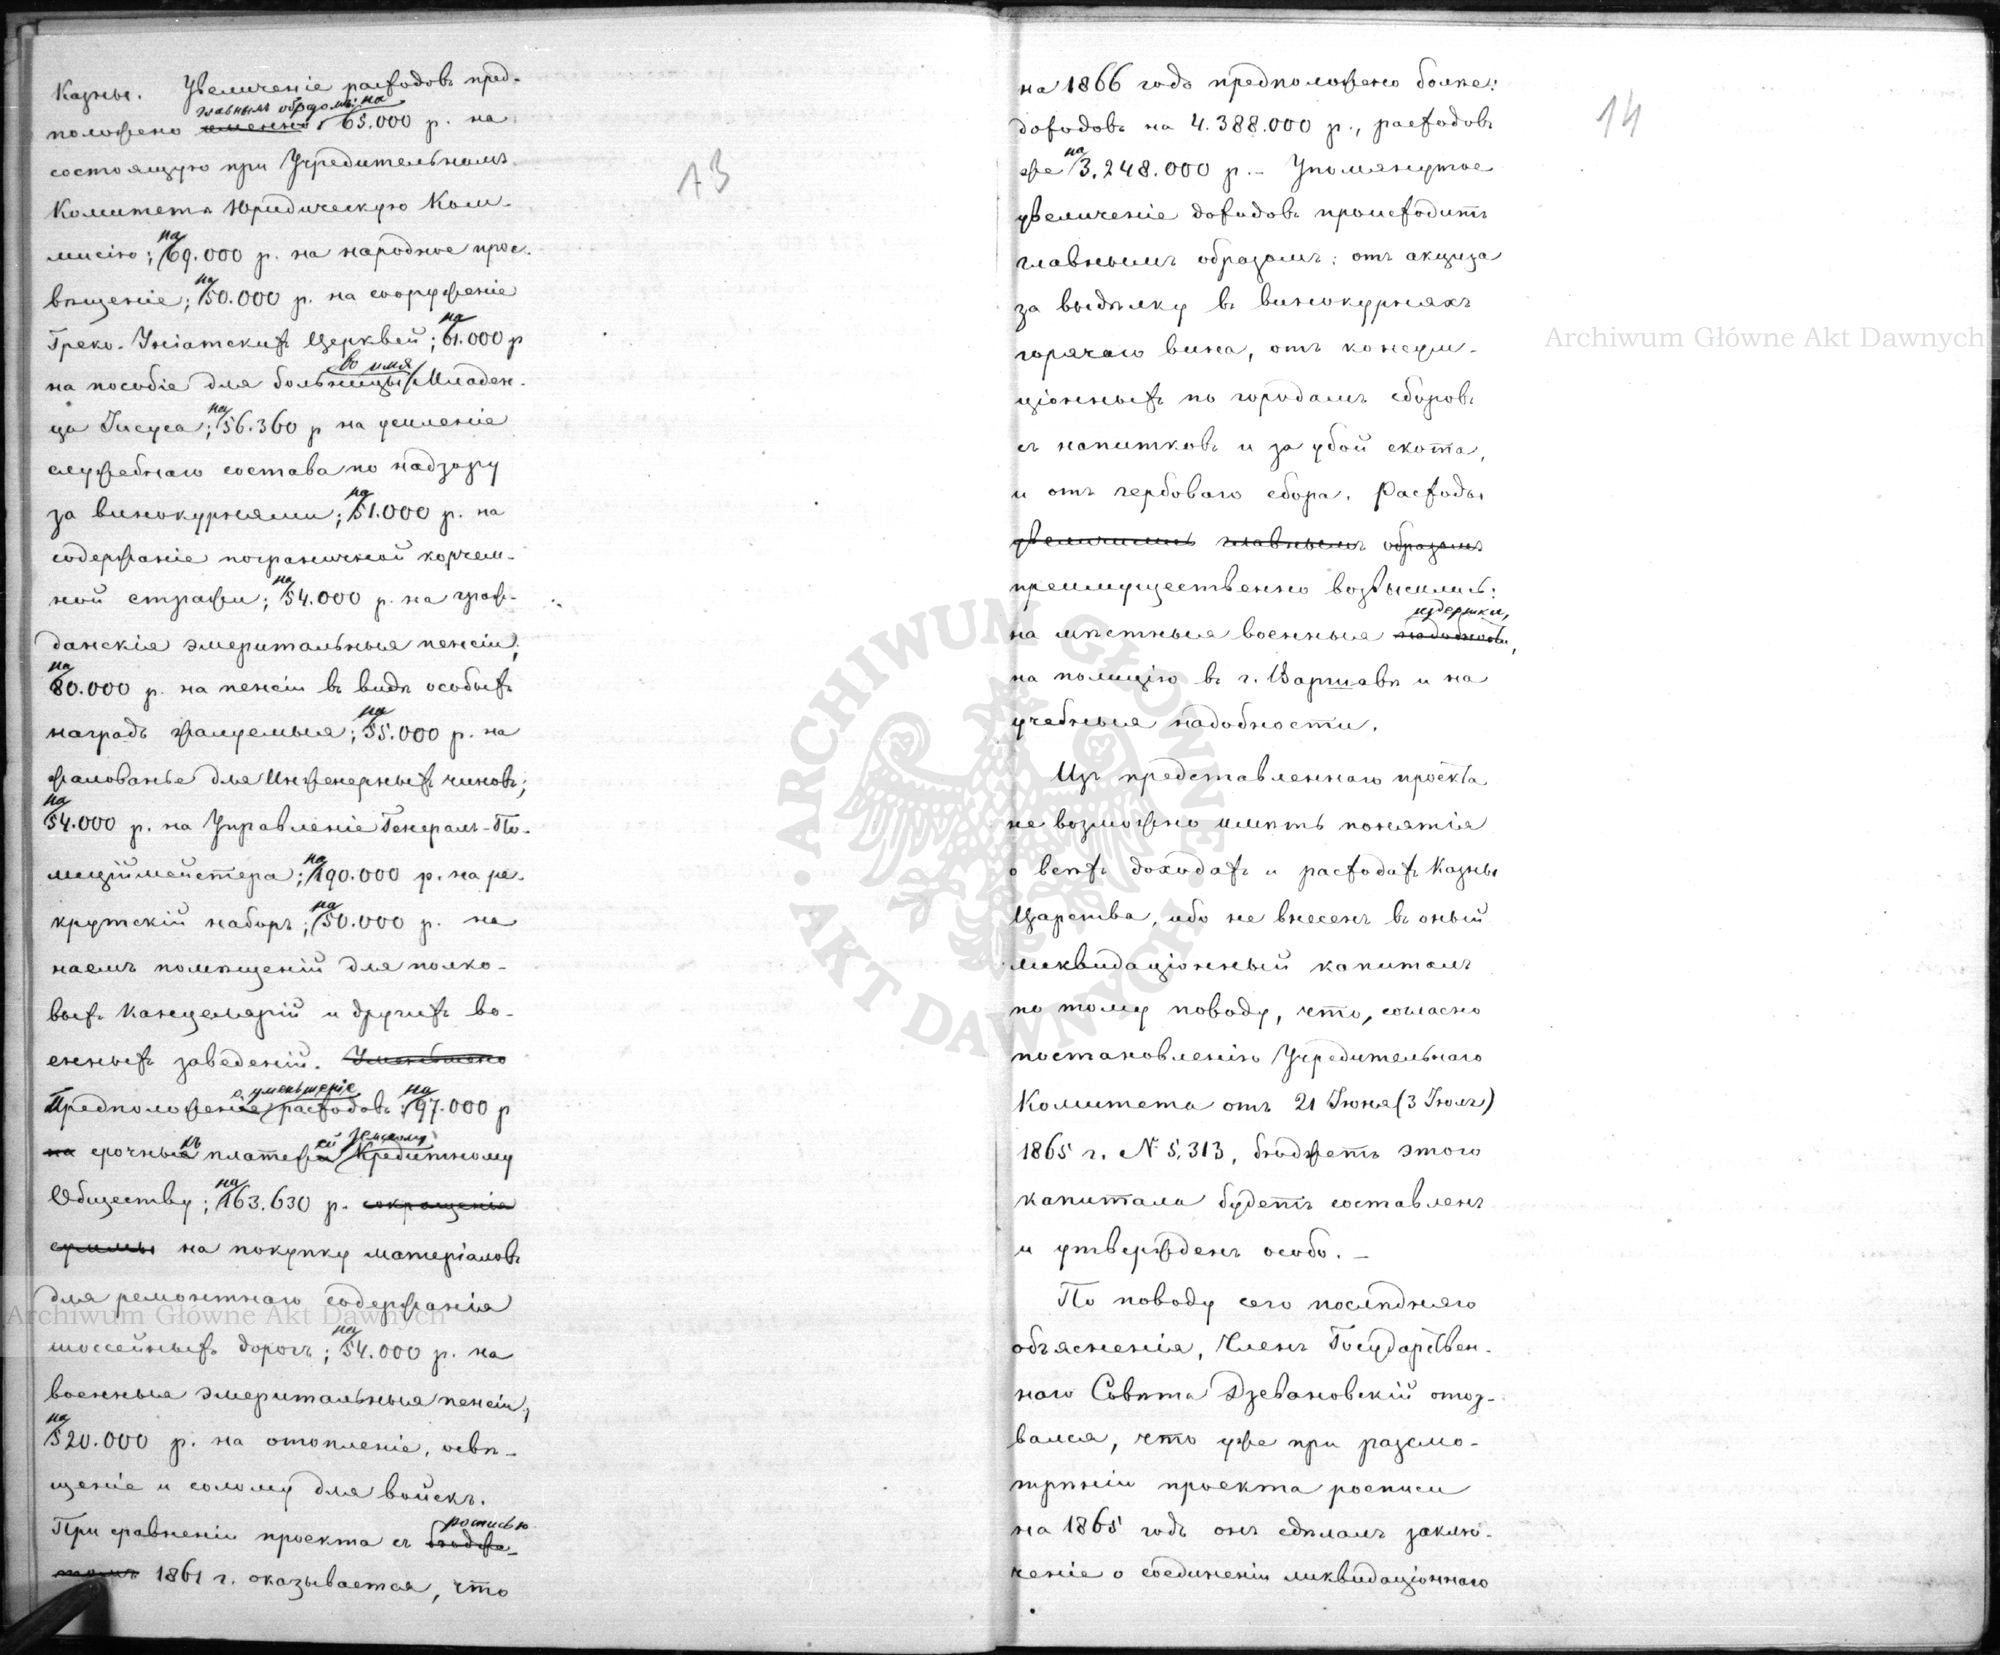 Казны. Увеличеніе расходовъ пред-
главнымъ образомъ: на
положено именно: 65.000 р. на
состоящую при Учредительномъ
Комитетѣ Юридическую Ком-
мисію; на 69.000 р. на народное прос-
вѣщеніе; на 50.000 р. на сооруженіе
Греко-Уніатскихъ Церквей; на 61.000 р
во имя
на пособіе для больницы Младен-
ца Іисуса; на 56.360 р на усиленіе
служебнаго состава по надзору
за винокурнями; на 51.000 р. на
содержаніе пограничной корчем-
ной стражи; на 54.000 р. на граж-
данскія эмеритальныя пенсіи;
на 80.000 р. на пенсіи въ видѣ особыхъ
наградъ жалуемыя; на 55.000 р. на
жалованье для Инженерныхъ чиновъ;
на 54.000 р. на Управленіе Генералъ-По-
лиціймейстера; на 190.000 р. на ре-
крутскій наборъ; на 50.000 р. на
наемъ помѣщеній для полко-
выхъ Канцелярій и другихъ во-
енныхъ заведеній. Уменьшено
уменьшеніе на
Предположено расходовъ: 97.000 р
на срочныхъ платежей Земскому Кредитному
Обществу; на 163.630 р. сокращенія
суммы на покупку матеріаловъ
для ремонтнаго содержанія
шоссейныхъ дорогъ; на 54.000 р. на
военныя эмеритальныя пенсіи;
на 520.000 р. на отопленіе, освѣ-
щеніе и солому для войскъ.
росписью
При сравненіи проекта съ бюдже-
томъ 1861 г. оказывается, что
13
на 1866 годъ предположено болѣе:
доходовъ на 4.388.000 р., расходовъ
же на 3.248.000 р. – Упомянутое
увеличеніе доходовъ происходитъ
главнымъ образомъ: отъ акциза
за выдѣлку въ винокурняхъ
горячаго вина, отъ консум-
ціонныхъ по городамъ сборовъ
съ напитковъ и за убой скота,
и отъ гербоваго сбора. Расходы
увеличились главнымъ образомъ
преимущественно возвысились:
издержки,
на мѣстныя военныя надобности,
на полицію въ г. Варшавѣ и на
учебныя надобности.
Изъ представленнаго проекта
не возможно имѣть понятія
о всѣхъ доходахъ и расходахъ Казны
Царства, ибо не внесенъ въ оный
ликвидаціонный капиталъ
по тому поводу, что, согласно
постановленію Учредительнаго
Комитета отъ 21 Іюня (3 Іюля)
1865 г. № 5,313, бюджетъ этого
капитала будетъ составленъ
и утвержденъ особо. –
По поводу сего послѣдняго
объясненія, Членъ Государствен-
наго Совѣта Дзевановскій отоз-
вался, что уже при разсмо-
трѣніи проекта росписи
на 1865 годъ онъ сдѣлалъ заклю-
ченіе о соединеніи ликвидаціоннаго
14
Archiwum Główne Akt Dawnych
Archiwum Główne Akt Dawnych
ARCHIWUM GŁÓWNE AKT DAWNYCH